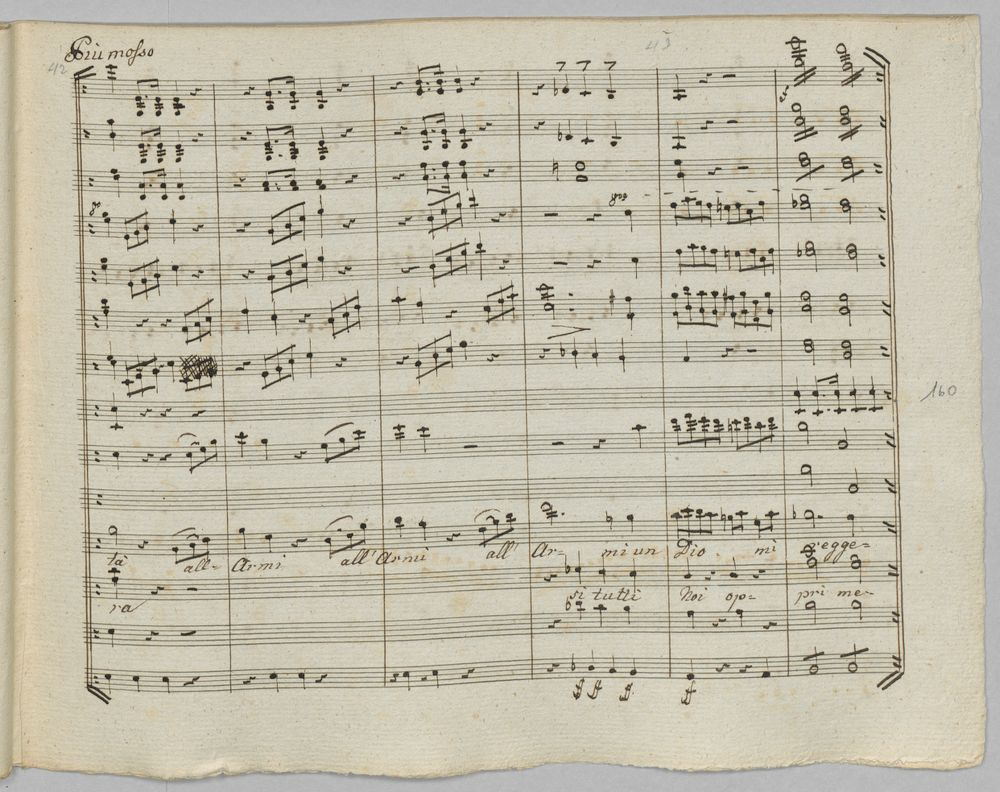 Più mosso
42
43
8º
8va
160
tà all- Armi all' Armi all' Ar- mi un Dio mi regge=
si tutti Noi op= pri me-
ra